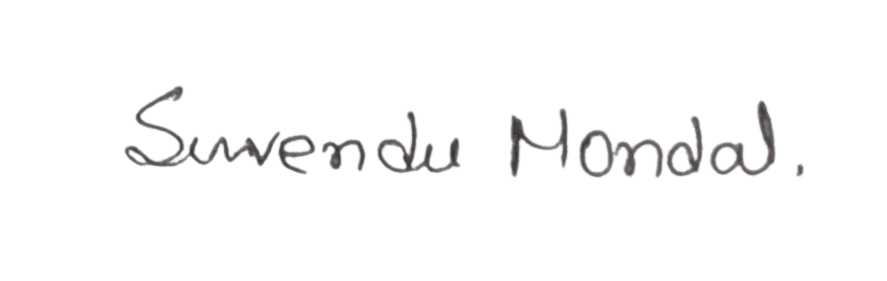 Suvendu Mondal.